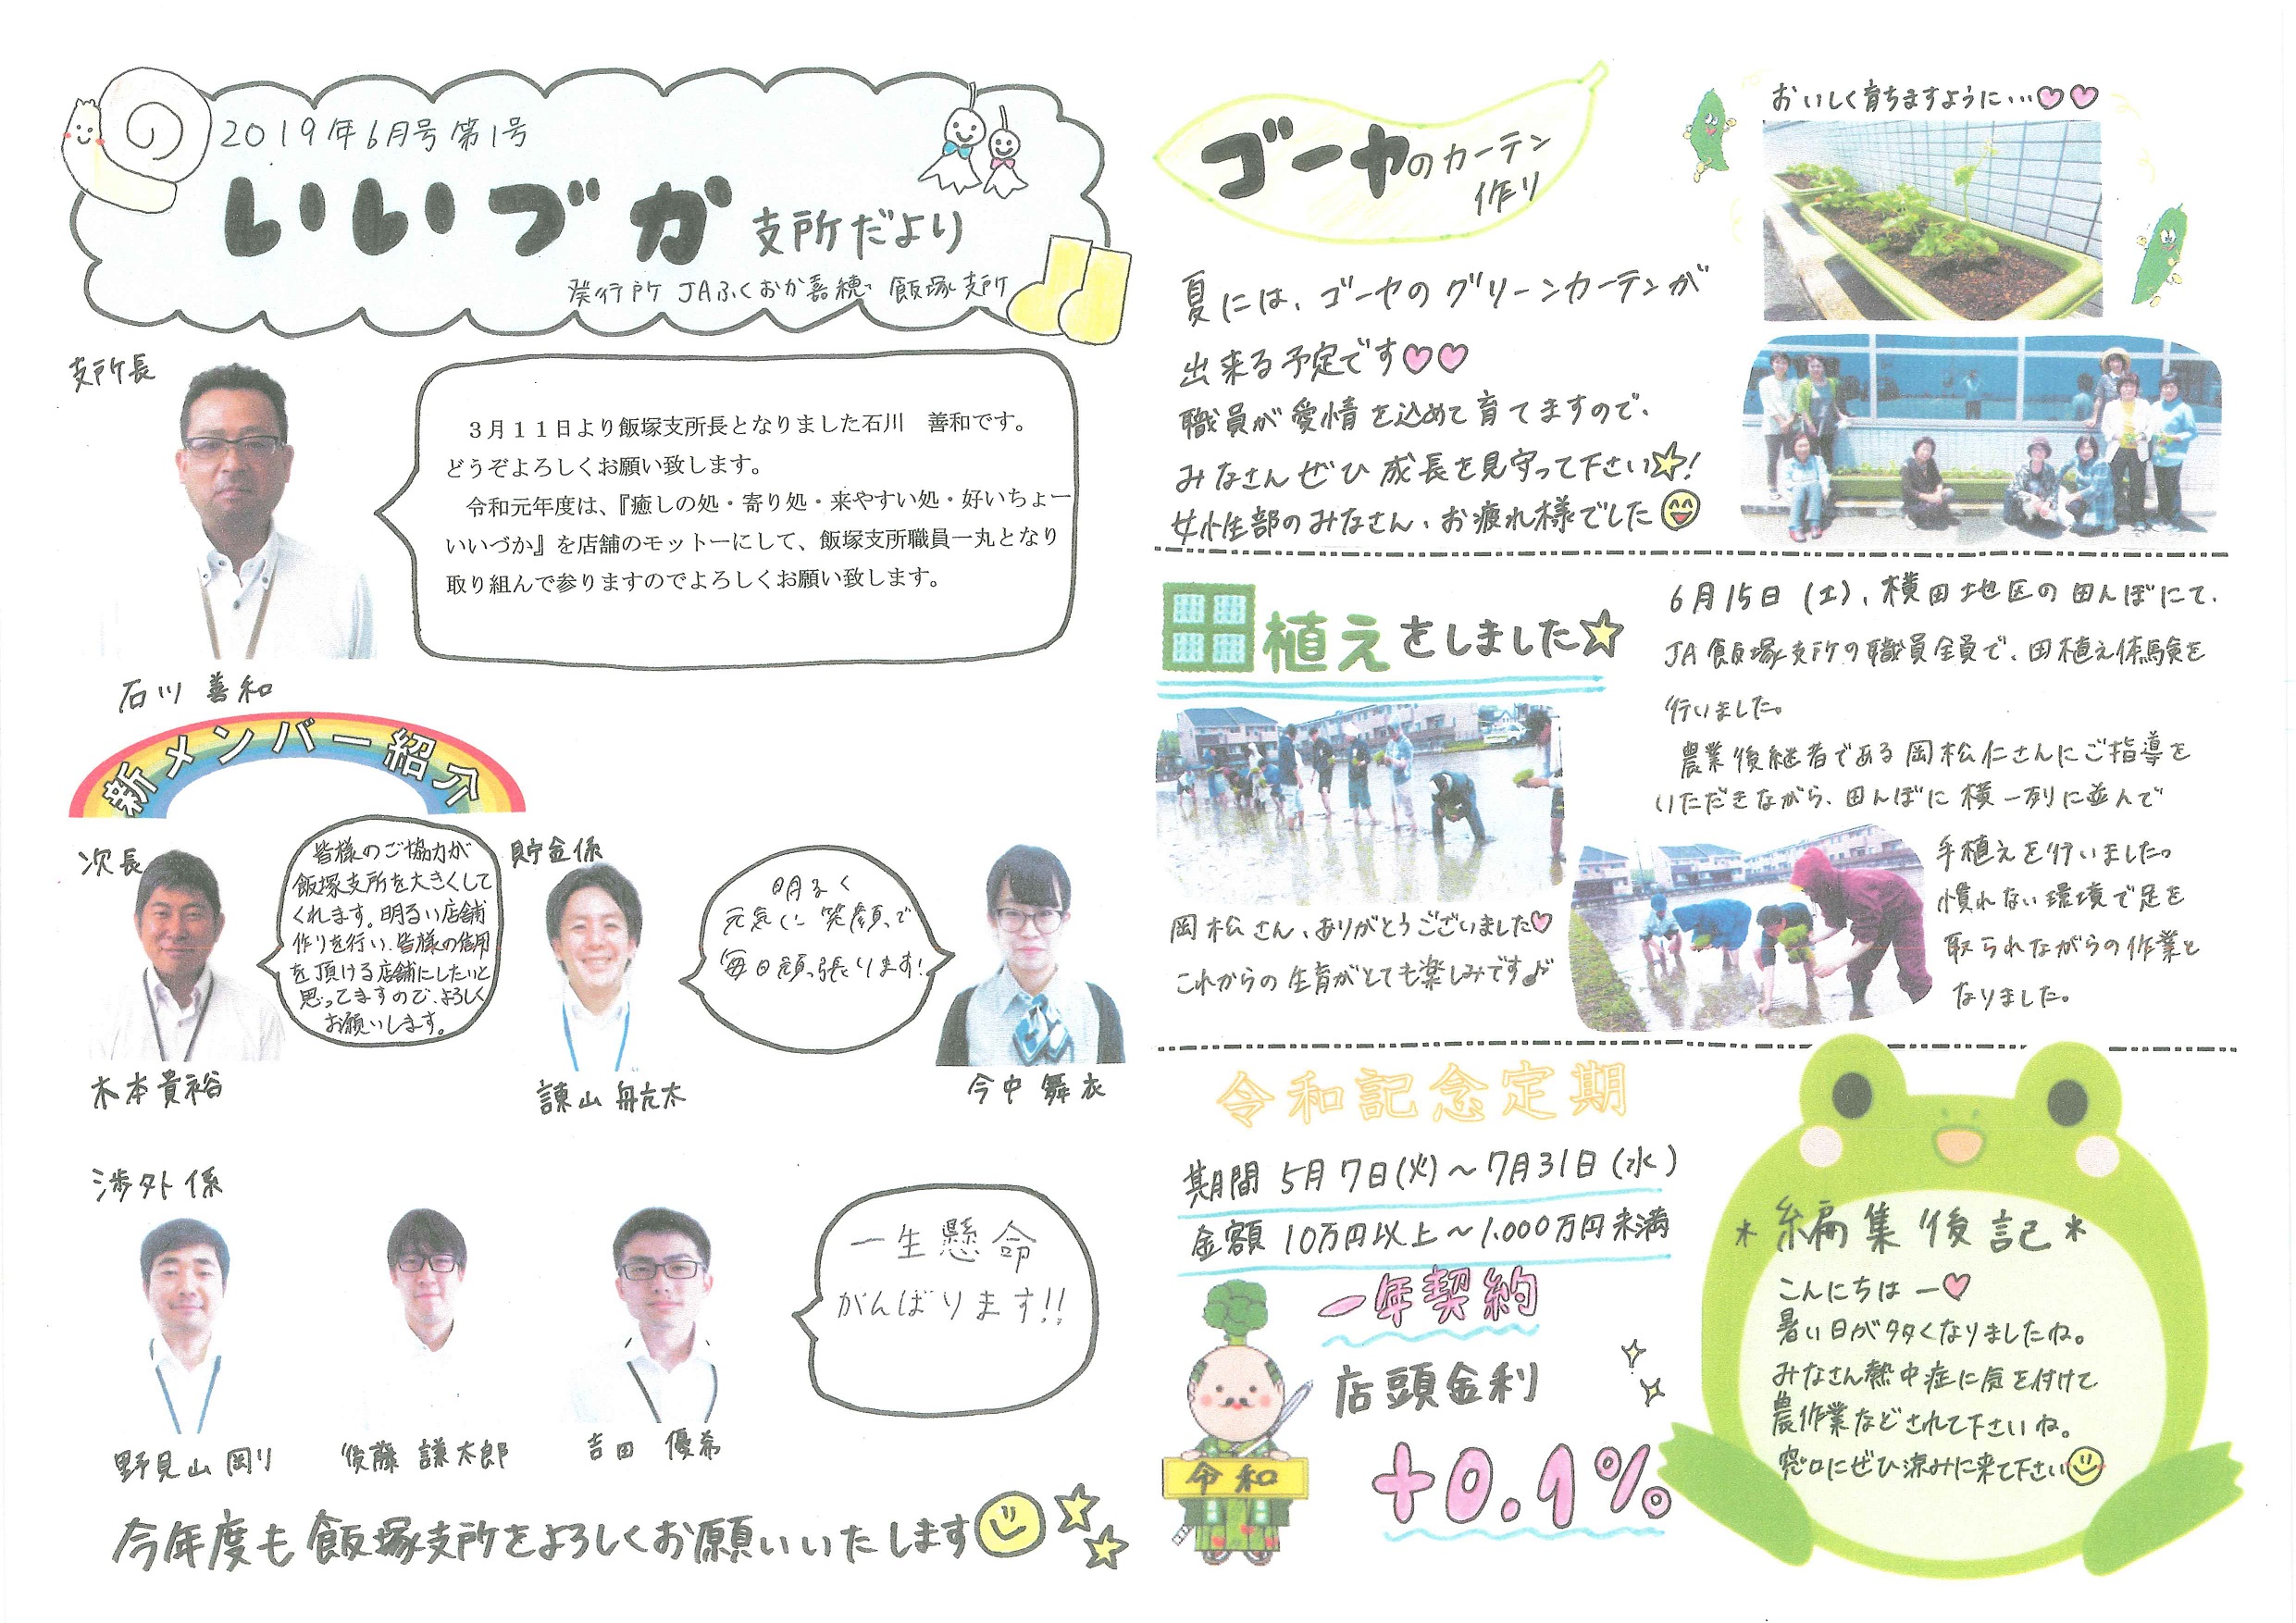 2019年6月号第1号
いいづか 支所だより
発行所 JAふくおか嘉穂 飯塚支所
支所長
３月１１日より飯塚支所長となりました石川　善和です。
どうぞよろしくお願い致します。
令和元年度は、『癒しの処・寄り処・来やすい処・好いちょー
いいづか』を店舗のモットーにして、飯塚支所職員一丸となり
取り組んで参りますのでよろしくお願い致します。
石川 善和
新メンバー紹介
次長
皆様のご協力が
飯塚支所を大きくして
くれます。明るい店舗
作りを行い、皆様の信用
を頂ける店舗にしたいと
思ってますので、よろしく
お願いします。
木本貴裕
貯金係
明るく
元気に 笑顔で
毎日頑張ります!
諌山 航太
今中 舞衣
渉外係
一生懸命
がんばります!!
野見山 剛
後藤 謙太郎
吉田 優希
今年度も飯塚支所をよろしくお願いいたします
ゴーヤのカーテン
作り
おいしく育ちますように…♡♡
夏には、ゴーヤのグリーンカーテンが
出来る予定です♡♡
職員が愛情を込めて育てますので、
みなさんぜひ成長を見守って下さい☆!
女性部のみなさん、お疲れ様でした
田植えをしました☆
6月15日(土)、横田地区の田んぼにて、
JA飯塚支所の職員全員で、田植え体験を
行いました。
農業後継者である岡松仁さんにご指導を
いただきながら、田んぼに横一列に並んで
手植えを行いました。
慣れない環境で足を
取られながらの作業と
なりました。
岡松さん、ありがとうございました♡
これからの生育がとても楽しみです♪
令和記念定期
期間 5月7日(火)～7月31日(水)
金額 10万円以上～1,000万円未満
一年契約
店頭金利
+0.1%
令和
＊編集後記＊
こんにちはー♡
暑い日が多くなりましたね。
みなさん熱中症に気を付けて
農作業などされて下さいね。
窓口にぜひ涼みに来て下さい